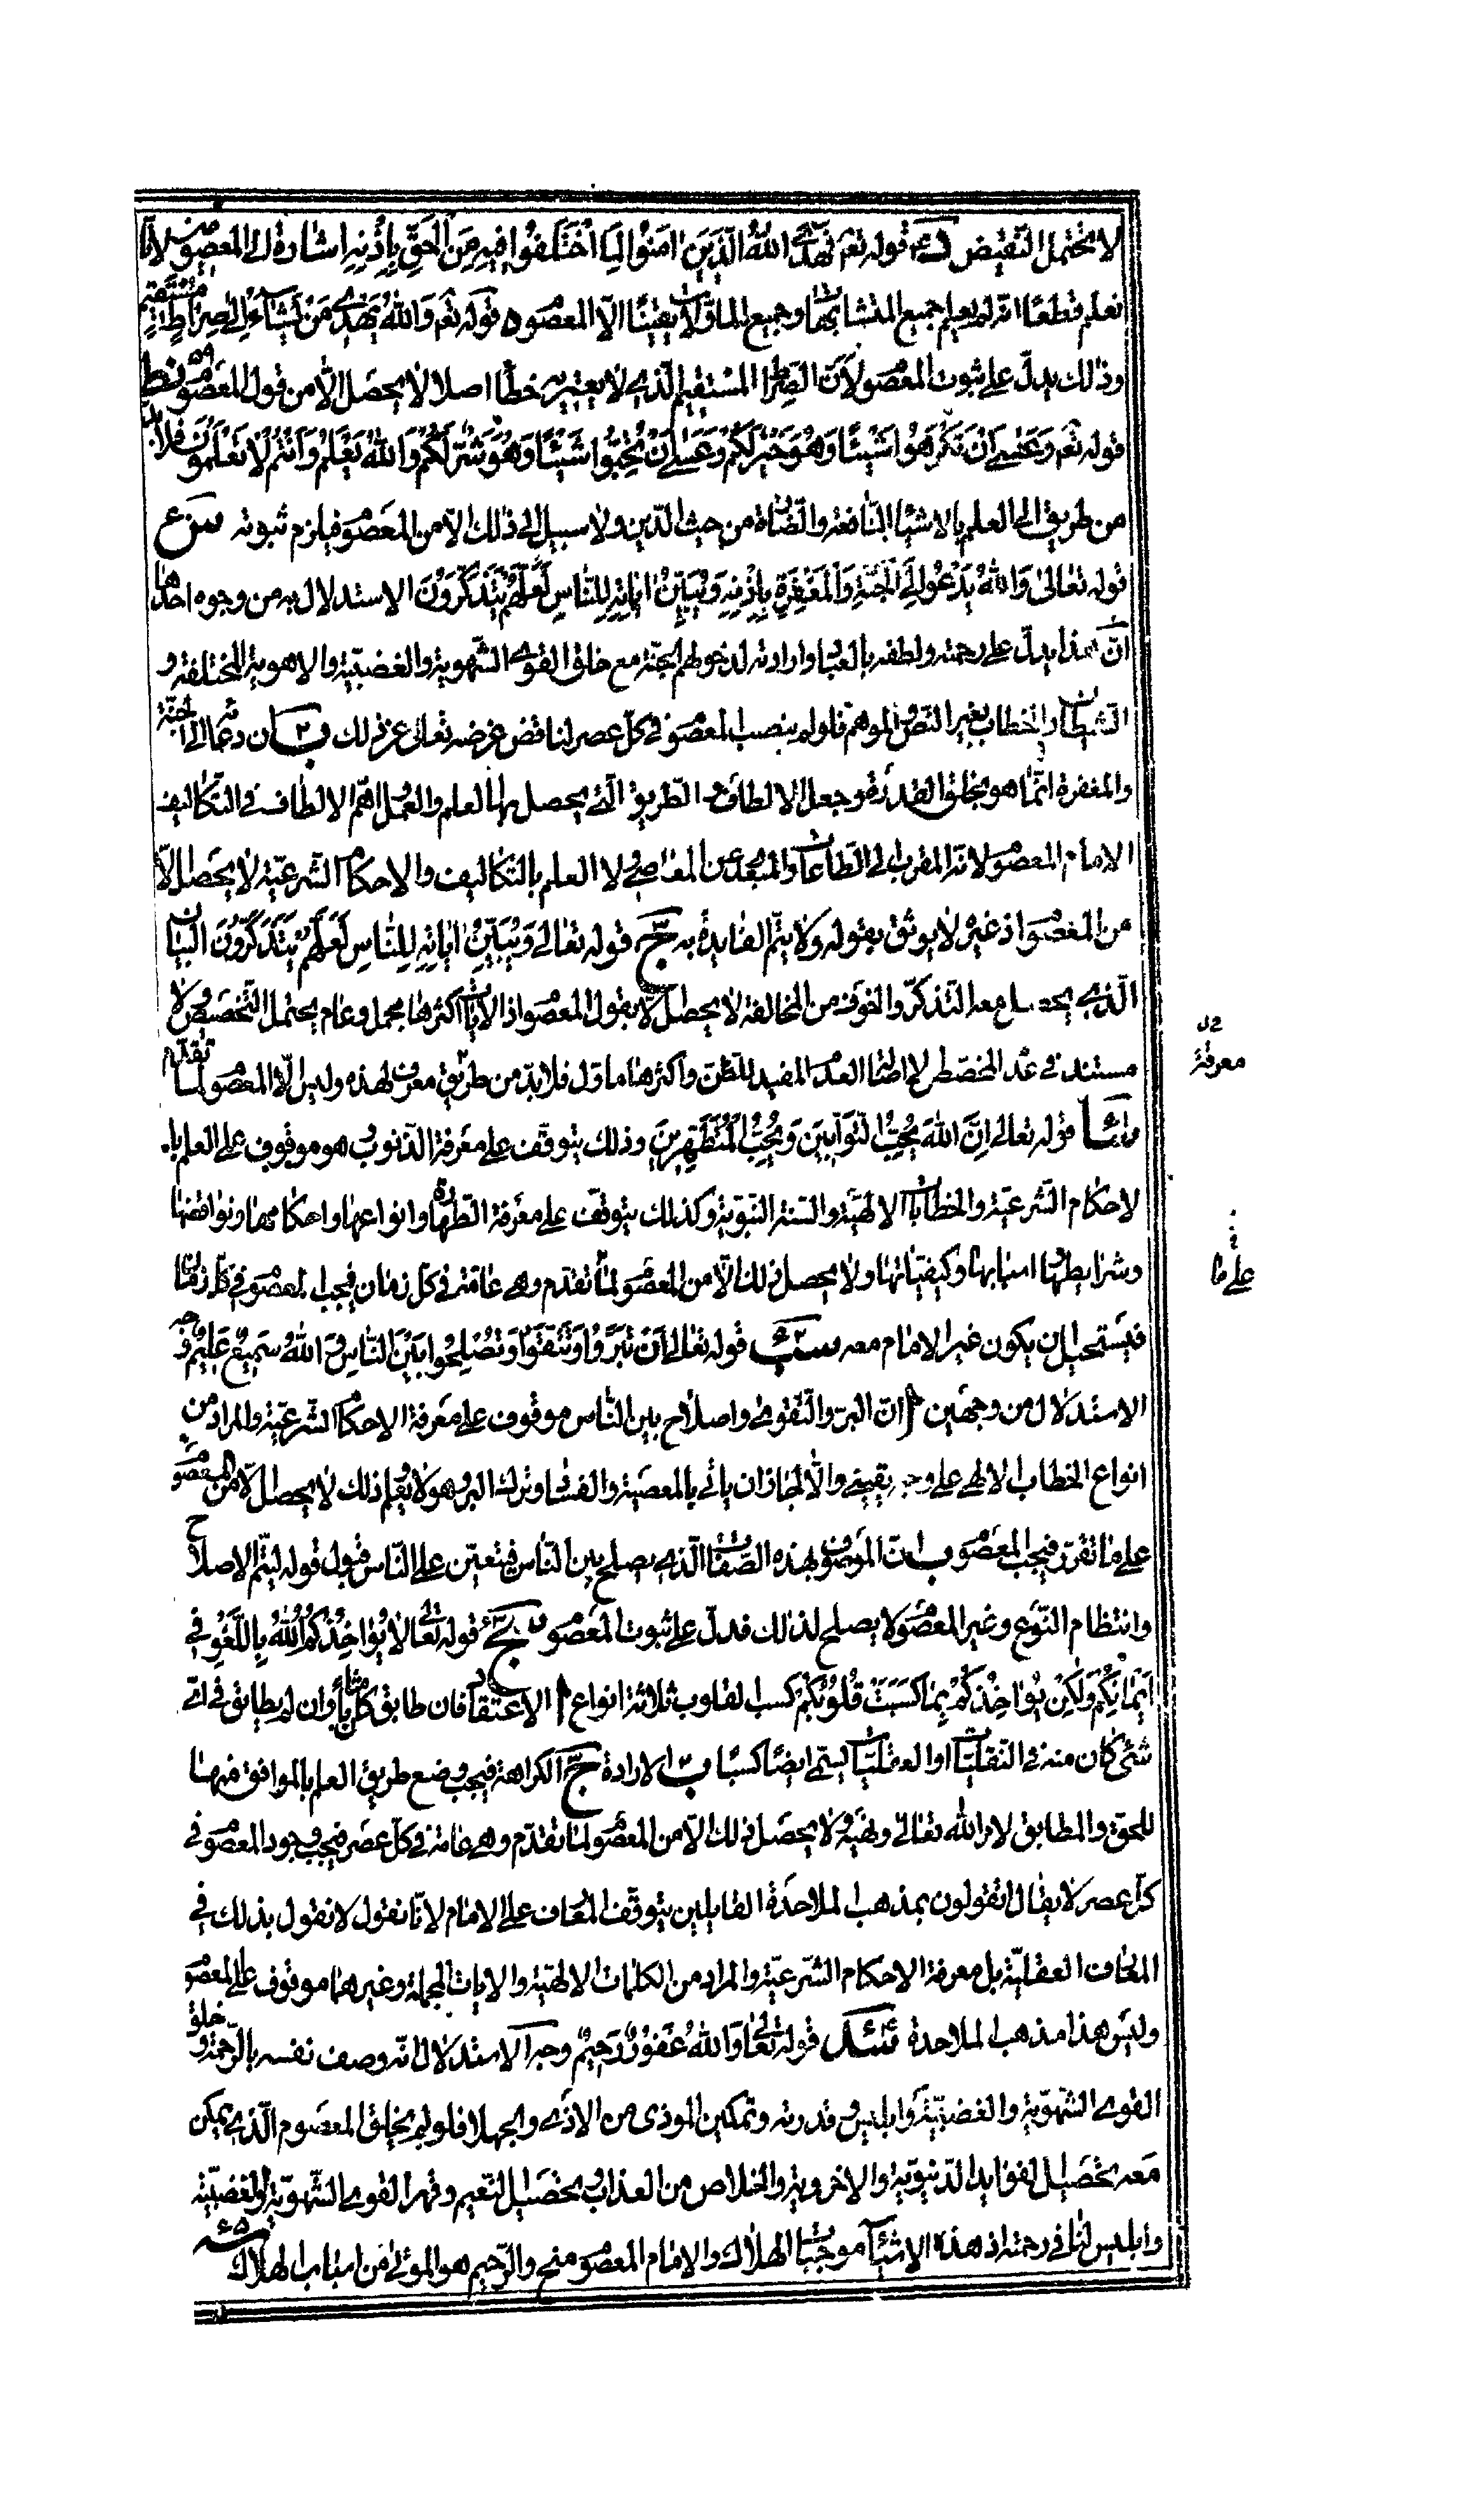 لا يحتمل النقيض قوله تعم فهدى الله الذين امنوا لما اختلفوا فيه من الحق باذنه اشارة الى المعصومين لانا
نعلم قطعًا انه لم يعلم جميع المتشابهات وجميع الماوّلات يقينًا الا المعصوم قوله تعم والله يهدى من يشاء الى صراط مستقيم
وذلك يدلّ على ثبوت المعصوم لانّ الصراط المستقيم الذى لا يعتريه خطأ اصلا لا يحصل الّا من قول المعصوم
قوله تعم وعسى ان تكرهوا شيئًا وهو خير لكم وعسى ان تحبّوا شيئًا وهو شرّ لكم والله يعلم وانتم لا تعلمون فلا بد
من طريق الى العلم بالاشياء النافعة والضارة من حيث الدين ولا سبيل الى ذلك الّا من المعصوم فيلزم ثبوته
قوله تعالى والله يدعو الى الجنّة والمغفرة باذنه ويبيّن اياته للناس لعلّهم يتذكّرون الاستدلال به من وجوه احدها
انّ هذا يدلّ على رحمته ولطفه بالعباد وارادته لدخولهم الجنّة مع خلق القوى الشهوية والغضبيّة والاهوية المختلفة و
الشيطان والخطاب بغير النصّ الموهم فلو لم ينصب المعصوم فى كلّ عصر لناقض غرضه تعالى عن ذلك ب ان دعائه الى الجنّة
والمغفرة انّما هو بخلق القدرة وجعل الالطاف والطريق الّتى يحصل بها العلم والعمل اهمّ الالطاف فى التكاليف
الامام المعصوم لانه المقرب الى الطاعات والمبعد عن المعاصى ولا العلم بالتكاليف والاحكام الشرعيّة لا يحصل الّا
من المعصوم اذ غيره لا يوثق بقوله ولا يتمّ الفايدة به ج قوله تعالى ويبيّن اياته للناس لعلّهم يتذكّرون البيان
الّذى يحصل معه التذكّر والخوف من المخالفة لا يحصل الّا بقول المعصوم اذ الايات اكثرها مجمل وعام يحتمل التخصيص ولا
مستند فى عدم المخصّص الا اصالة العدم المفيد للظنّ واكثرها ماوّل فلا بدّ من طريق معرف لهذه وليس الّا المعصوم لما تقدّم
قوله تعالى انّ الله يحبّ التوّابين ويحبّ المتطهّرين وذلك يتوقّف على معرفة الذنوب هو موقوف على العلم با
لاحكام الشرعيّة والخطابات الالهيّة والسنة النبويّة وكذلك يتوقّف على معرفة الطهارة وانواعها واحكامها ونواقضها
وشرايطها واسبابها وكيفيّاتها ولا يحصل ذلك الّا من المعصوم لما تقدم وهى عامّة فى كلّ زمان فيجب المعصوم فى كلّ زمان
فيستحيل ان يكون غير الامام معه قوله تعالى ان تبرّوا وتتّقوا وتصلحوا بين الناس والله سميع عليم وجه
الاستدلال من وجهين ا انّ البرّ والتّقوى واصلاح بين النّاس موقوف على معرفة الاحكام الشرعيّة والمراد من
انواع الخطاب الالهى على وجه يقينى والّا لجاز ان ياتى بالمعصية والفساد وترك البر وهو لا يعلم اذ ذلك لا يحصل الّا من المعصوم
على ما تقرّر فيجب المعصوم ب انّ الموصوف بهذه الصّفات الّذى يصلح بين النّاس فيتعيّن على النّاس قبول قوله ليتمّ الاصلاح
وانتظام النّوع وغير المعصوم لا يصلح لذلك فدلّ على ثبوت المعصوم قوله تعالى لا يؤاخذكم الله باللّغو فى
ايمانكم ولكن يؤاخذكم بما كسبت قلوبكم كسب القلوب ثلاثة انواع ا الاعتقاد فان طابق كان مثابا وان لم يطابق فى اىّ
شئ كان منه فى النقليّات او العقليّات ليتمى ايضًا كسبًا ب الارادة ج الكراهة فيجب وضع طريق العلم بالموافق منهما
للحق والمطابق لامر الله تعالى ونهيه ولا يحصل ذلك الّا من المعصوم لما تقدّم وهى عامّة فى كلّ عصر فيجب وجود المعصوم فى
كلّ عصر لا يقال اتقولون بمذهب الملاحدة القايلين بتوقّف المعارف على الامام لانّا نقول لا نقول بذلك فى
المعارف العقليّة بل معرفة الاحكام الشرعيّة والمراد من الكلمات الالهيّة والايات المجملة وغيرهما موقوف على المعصوم
وليس هذا مذهب الملاحدة قوله تعالى والله غفور رحيم وجه الاستدلال انّه وصف نفسه بالرّحمة وخلق
القوى الشهويّة والغضبيّة وابليس وقدرته وتمكين الموذى من الاذى والجهل فلو لم يخلق المعصوم الّذى يمكن
معه تحصيل الفوايد الدنيويّة والاخرويّة والخلاص من العذاب وتحصيل النّعيم وقهر القوى الشهويّة والغضبيّة
وابليس لنافى رحمته اذ هذه الاشياء موجبات الهلاك والامام المعصوم منج والرّحيم هو الموقى من اسباب الهلاك
معرفة
على ما